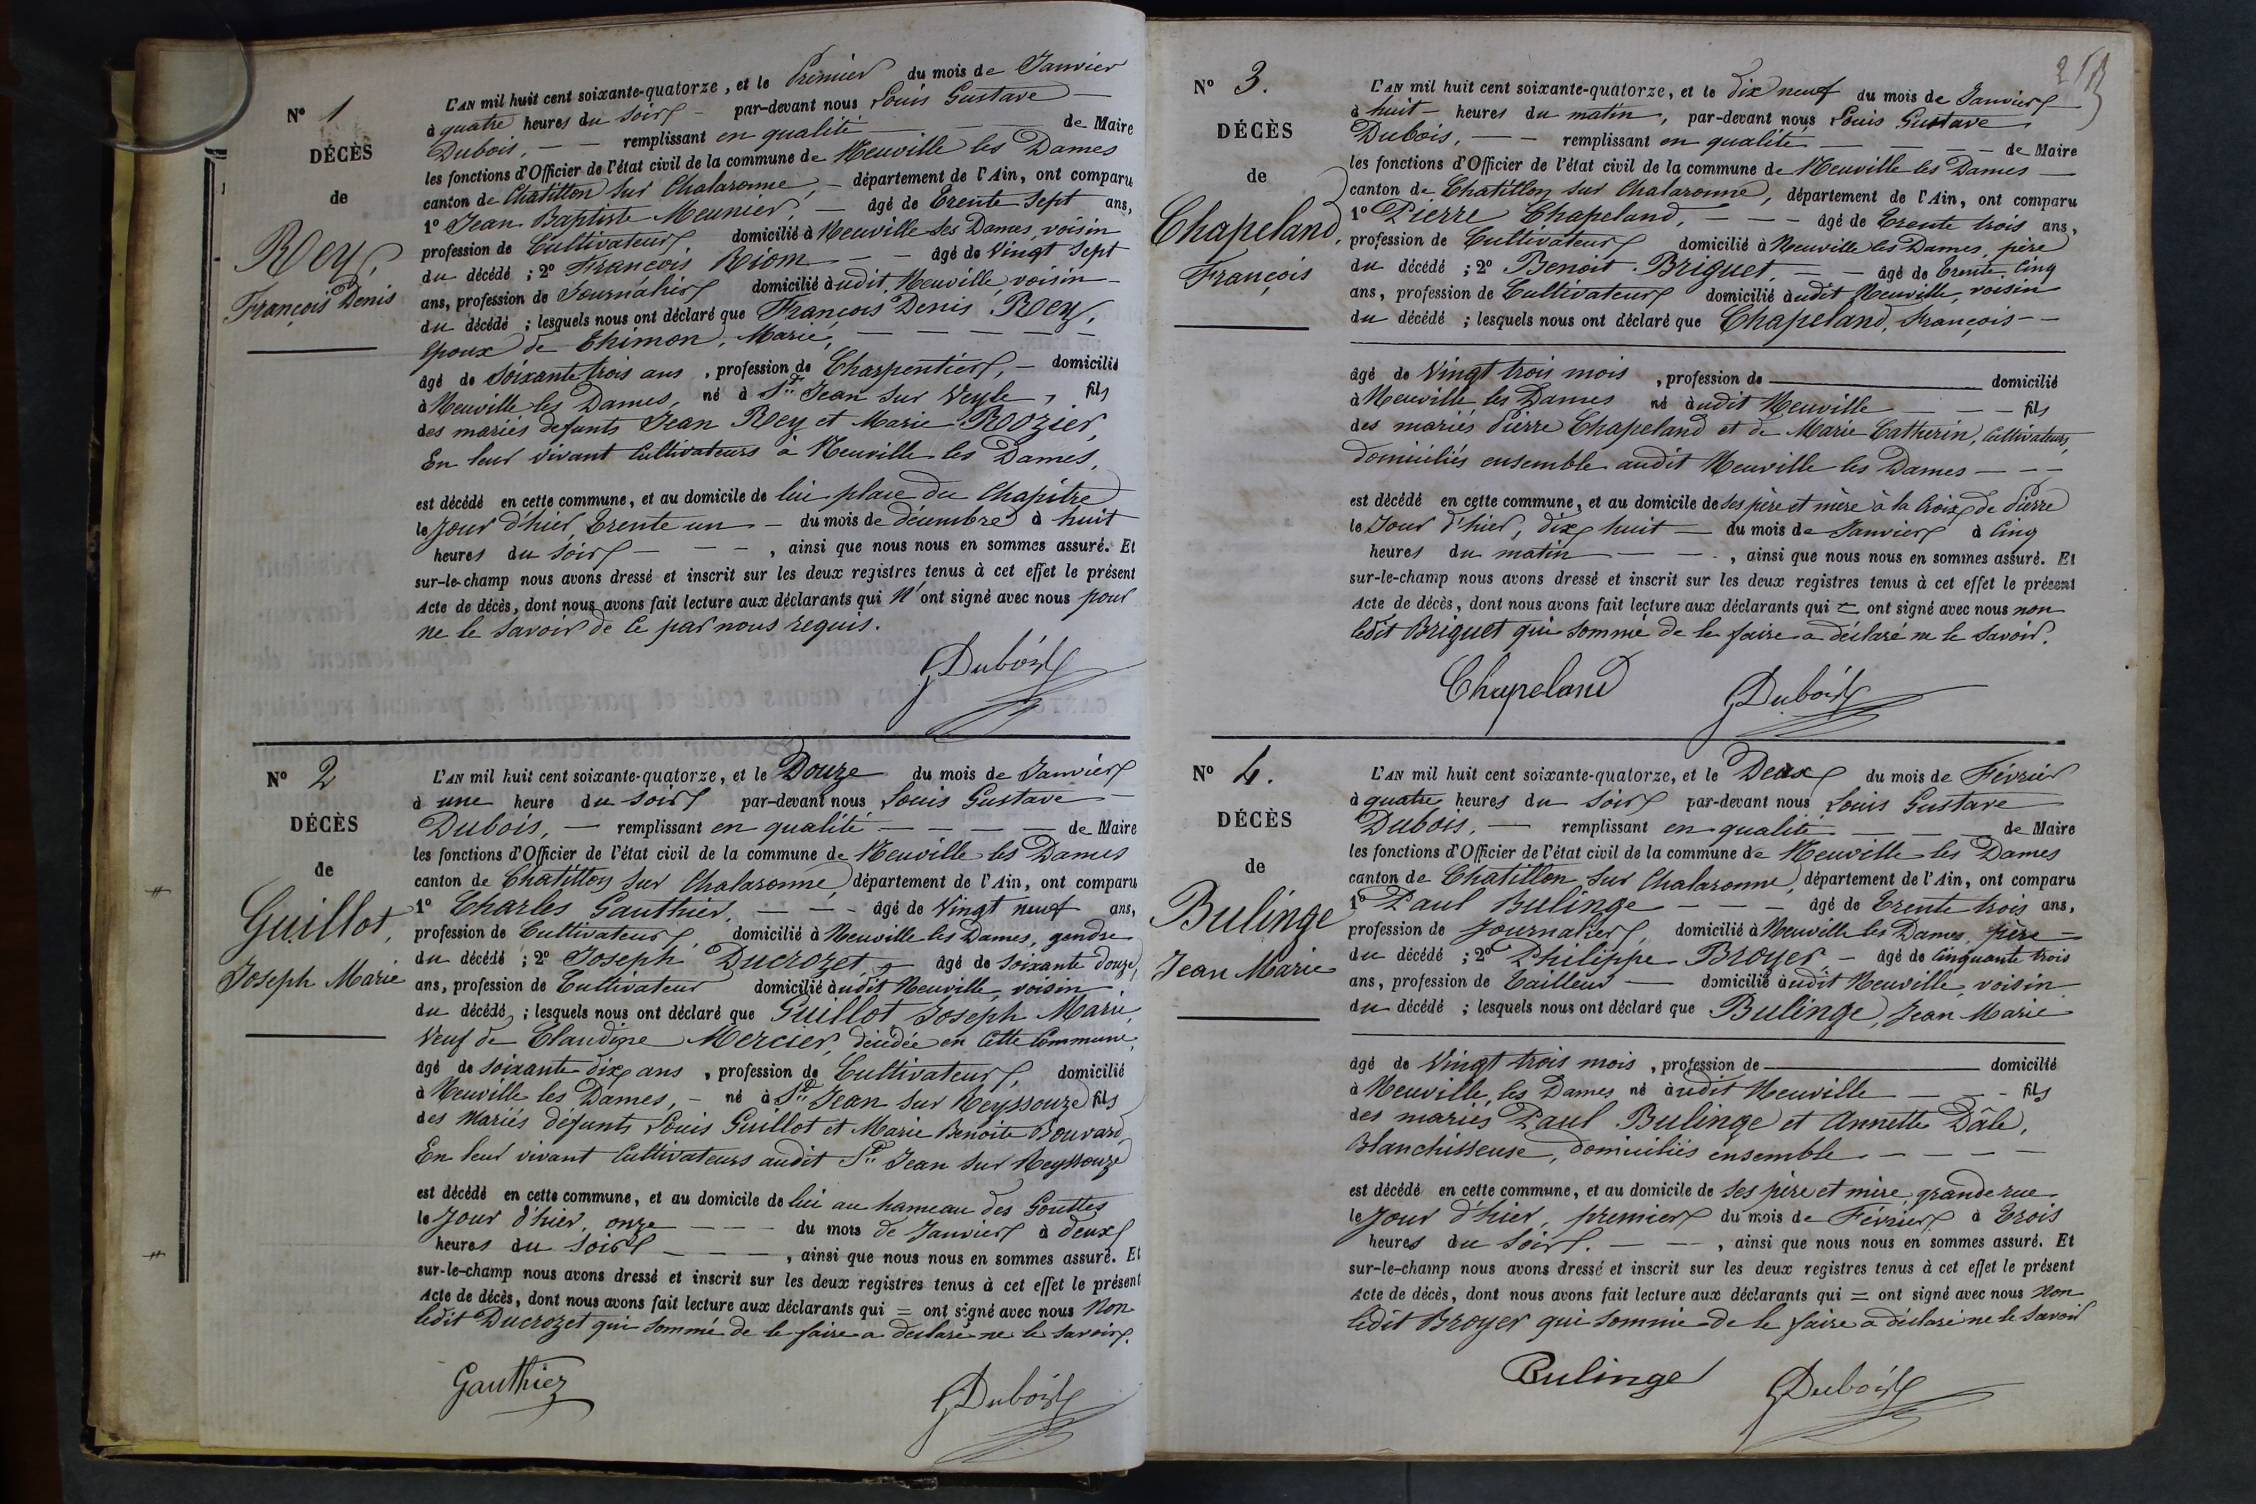 N° 1
DÉCÈS
de
Rey,
François Denis
L'AN mil huit cent soixante-quatorze, et le Premier du mois de Janvier
à quatre heures du soir — par-devant nous Louis Gustave —
Dubois, — — remplissant en qualité — — — de Maire
les fonctions d'Officier de l'état civil de la commune de Neuville les Dames
canton de Chatillon sur Chalaronne, — département de l'Ain, ont comparu
1° Jean Baptiste Meunier, — âgé de Trente sept ans,
profession de Cultivateur, domicilié à Neuville les Dames, voisin
du décédé ; 2° François Riom — — âgé de Vingt sept
ans, profession de Journalier domicilié audit Neuville, voisin —
du décédé ; lesquels nous ont déclaré que François Denis Rey,
époux de Thimon, Marie, — — — — —
âgé de soixante trois ans, profession de Charpentier, — domicilié
à Neuville les Dames, né à St Jean sur Veyle, fils
des mariés défunts Jean Rey et Marie Rozier,
En leur vivant Cultivateurs à Neuville les Dames,
est décédé en cette commune, et au domicile de lui place du Chapitre
le Jour d'hier, trente un — du mois de décembre à huit
heures du soir — — —, ainsi que nous nous en sommes assuré. Et
sur-le-champ nous avons dressé et inscrit sur les deux registres tenus à cet effet le présent
Acte de décès, dont nous avons fait lecture aux déclarants qui n'ont signé avec nous pour
ne le savoir de ce par nous requis.
GDubois
N° 2
DÉCÈS
de
Guillot,
Joseph Marie
L'AN mil huit cent soixante-quatorze, et le Douze du mois de Janvier
à une heure du soir par-devant nous Louis Gustave —
Dubois, — remplissant en qualité — — — — de Maire
les fonctions d'Officier de l'état civil de la commune de Neuville les Dames
canton de Chatillon sur Chalaronne, département de l'Ain, ont comparu
1° Charles Gauthier, — — — âgé de Vingt neuf ans,
profession de Cultivateur, domicilié à Neuville les Dames, gendre
du décédé ; 2° Joseph Ducrozet, — âgé de soixante douze,
ans, profession de Cultivateur domicilié audit Neuville, voisin
du décédé, ; lesquels nous ont déclaré que Guillot Joseph Marie,
Veuf de Claudine Mercier, décédée en Cette Commune,
âgé de soixante dix ans, profession de Cultivateur, domicilié
à Neuville les Dames, — né à St Jean sur Reyssouze fils
des Mariés défunts Louis Guillot et Marie Benoite Bouvard,
En leur vivant Cultivateurs audit St Jean sur Reyssouze
est décédé en cette commune, et au domicile de lui au hameau des Gouttes
le Jour d'hier, onze — — — du mois de Janvier à deux
heures du soir — — —, ainsi que nous nous en sommes assuré. Et
sur-le-champ nous avons dressé et inscrit sur les deux registres tenus à cet effet le présent
Acte de décès, dont nous avons fait lecture aux déclarants qui = ont signé avec nous Non
ledit Ducrozet qui sommé de le faire a déclaré ne le savoir.
Gauthier
GDubois
N° 3.
DÉCÈS
de
Chapeland,
François
L'AN mil huit cent soixante-quatorze, et le dix neuf du mois de Janvier
à huit — heures du matin, par-devant nous Louis Gustave
Dubois, — — remplissant en qualité — — — — de Maire
les fonctions d'Officier de l'état civil de la commune de Neuville les Dames —
canton de Chatillon sur Chalaronne, département de l'Ain, ont comparu
1° Pierre Chapeland, — — — âgé de Trente trois ans,
profession de Cultivateur domicilié à Neuville les Dames, père
du décédé ; 2° Benoit Briguet — — âgé de Trente Cinq
ans, profession de Cultivateur domicilié audit Neuville, voisin
du décédé ; lesquels nous ont déclaré que Chapeland, François — —
âgé de Vingt trois mois, profession de domicilié
à Neuville les Dames né audit Neuville — — — fils
des mariés Pierre Chapeland et de Marie Catherin, Cultivateurs,
domiciliés ensemble audit Neuville les Dames — — —
est décédé en cette commune, et au domicile de ses père et mère à la Croix de Pierre
le Jour d'hier, dix huit — du mois de Janvier à Cinq
heures du matin — — —, ainsi que nous nous en sommes assuré. Et
sur-le-champ nous avons dressé et inscrit sur les deux registres tenus à cet effet le présent
Acte de décès, dont nous avons fait lecture aux déclarants qui = ont signé avec nous non
ledit Briguet qui sommé de le faire a déclaré ne le savoir.
Chapeland
GDubois
N° 4.
DÉCÈS
de
Bulinge
Jean Marie
L'AN mil huit cent soixante-quatorze, et le Deux du mois de Février
à quatre heures du soir par-devant nous Louis Gustave
Dubois, — remplissant en qualité — — — de Maire
les fonctions d'Officier de l'état civil de la commune de Neuville les Dames
canton de Chatillon sur Chalaronne, département de l'Ain, ont comparu
1° Paul Bulinge — — — âgé de Trente trois ans,
profession de Journalier, domicilié à Neuville les Dames, père —
du décédé ; 2° Philippe Broyer — âgé de Cinquante trois
ans, profession de Tailleur — domicilié audit Neuville, voisin
du décédé ; lesquels nous ont déclaré que Bulinge, Jean Marie
âgé de Vingt trois mois, profession de domicilié
à Neuville les Dames né audit Neuville — — - fils
des mariés Paul Bulinge et Annette Dâle,
Blanchisseuse, domiciliés ensemble — — — —
est décédé en cette commune, et au domicile de ses père et mère, grande rue
le Jour d'hier, premier du mois de Février à Trois
heures du soir. — — —, ainsi que nous nous en sommes assuré. Et
sur-le-champ nous avons dressé et inscrit sur les deux registres tenus à cet effet le présent
Acte de décès, dont nous avons fait lecture aux déclarants qui = ont signé avec nous Non
ledit Broyer qui sommé de le faire a déclaré ne le savoir
Bulinge
GDubois